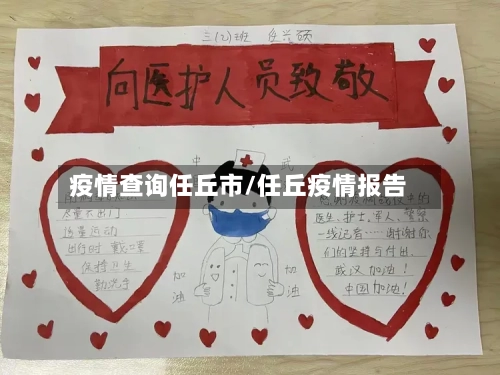 三(2)班
向医护人员致敬
中 武
疫情查询任丘市/任丘疫情报告
尽量不出门
适量运动
出行时 戴口罩
保持卫生
勤洗手
医生、护士、军人、警察
一线记者……谢谢你
们的坚持与付出.
武汉加油!
中国加油!
加油
加油